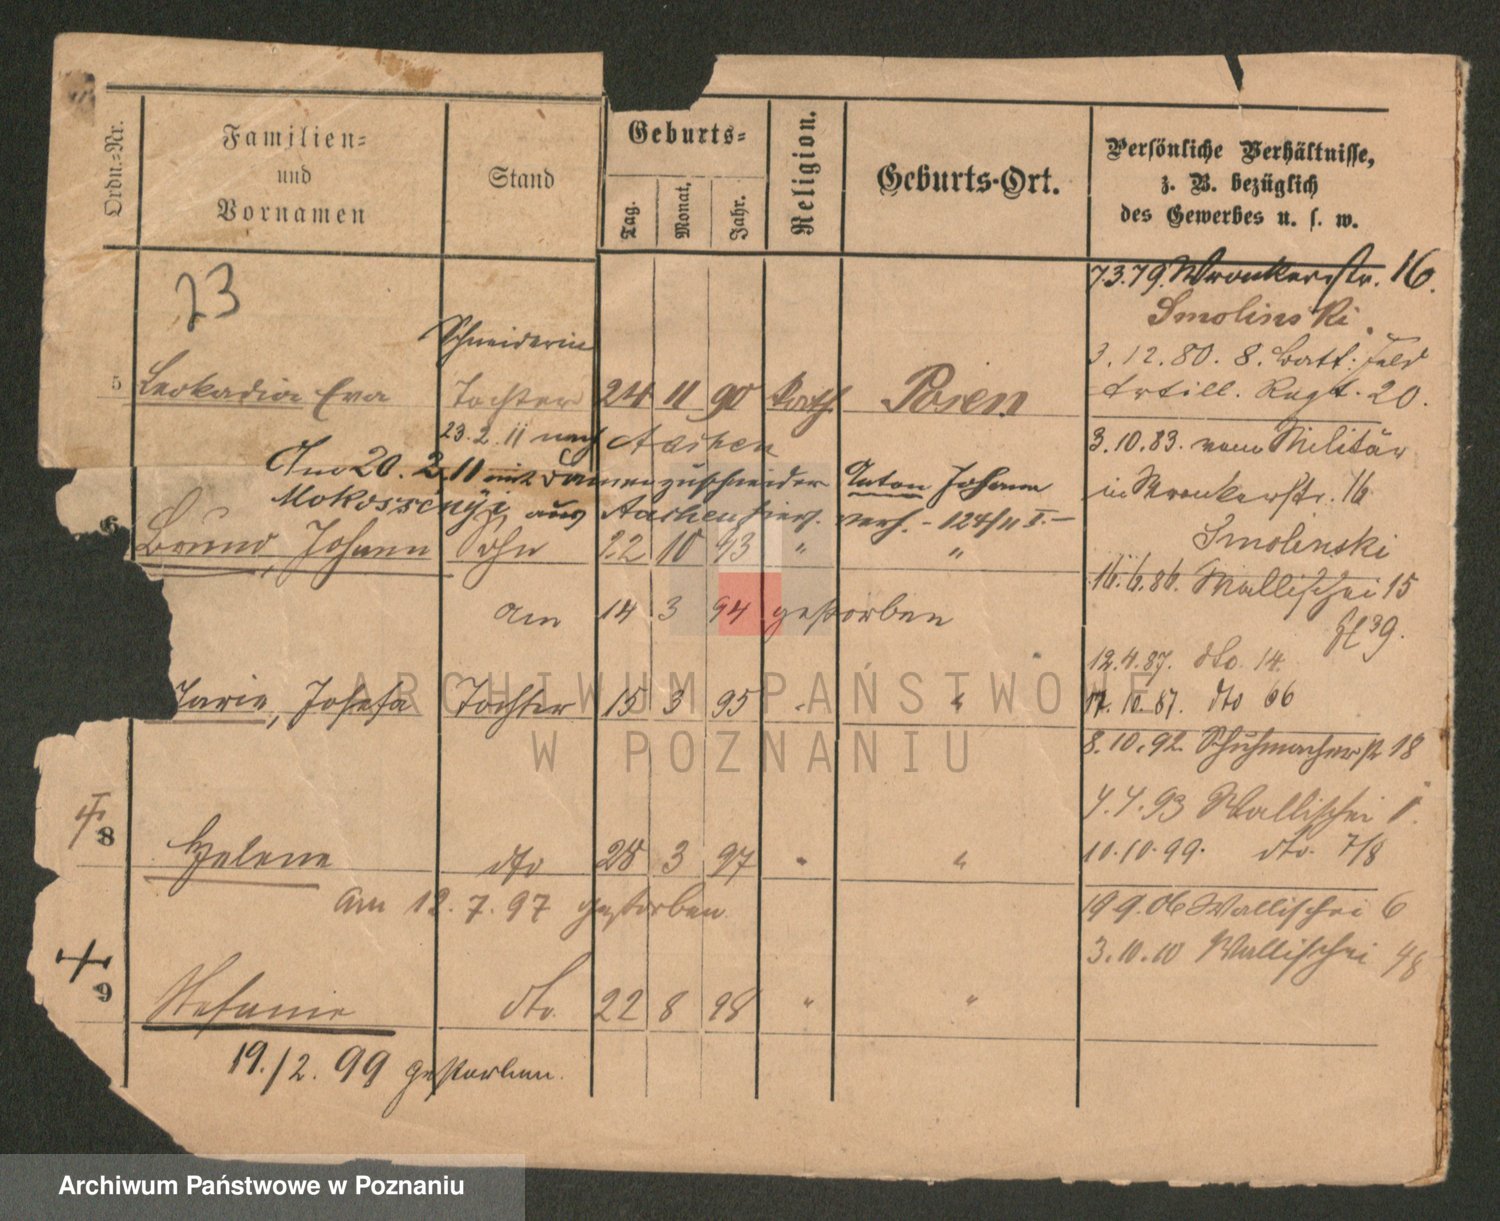 Ordn.-Nr.
Familien-
und
Vornamen
Stand
Geburts-
Tag.
Monat.
Jahr.
Religion.
Geburts-Ort.
Persönliche Verhältnisse,
z. B. bezüglich
des Gewerbes u. s. w.
23
7.3.79. Wronkerstr. 16.
Smolinski.
3.12.80. 8. Batt. Feld
Artill. Regt. 20.
Schneiderin
5 Leokadia Eva Tochter 24 11 90 kath. Posen
23.2.11 nach Aachen
Am 20.2.11 mit Damenzuschneider Anton Johann
Mokossényi aus Aachen hier. verh. - 124/11 I. -
6 Bruno, Johann Sohn 22 10 93 " "
am 14 3 94 gestorben
3.10.83. vom Militär
in Wronkerstr. 16
Smolinski
16.6.86. Wallischei 15
12.4.87. dto. 14.
17.10.87. dto 66
Marie, Josefa Tochter 15 3 95 " "
8.10.92. Schuhmacherstr 18
4.4.93 Wallischei 1.
10.10.99. dto. 7/8
8 Helene dto 28 3 97 " "
am 12.7.97 gestorben.
19 9.06 Wallischei 6
3.10.10 Wallischei 48
9 Stefanie dto. 22 8 98 " "
19./2.99 gestorben.
ARCHIWUM PAŃSTWOWE
W POZNANIU
Archiwum Państwowe w Poznaniu